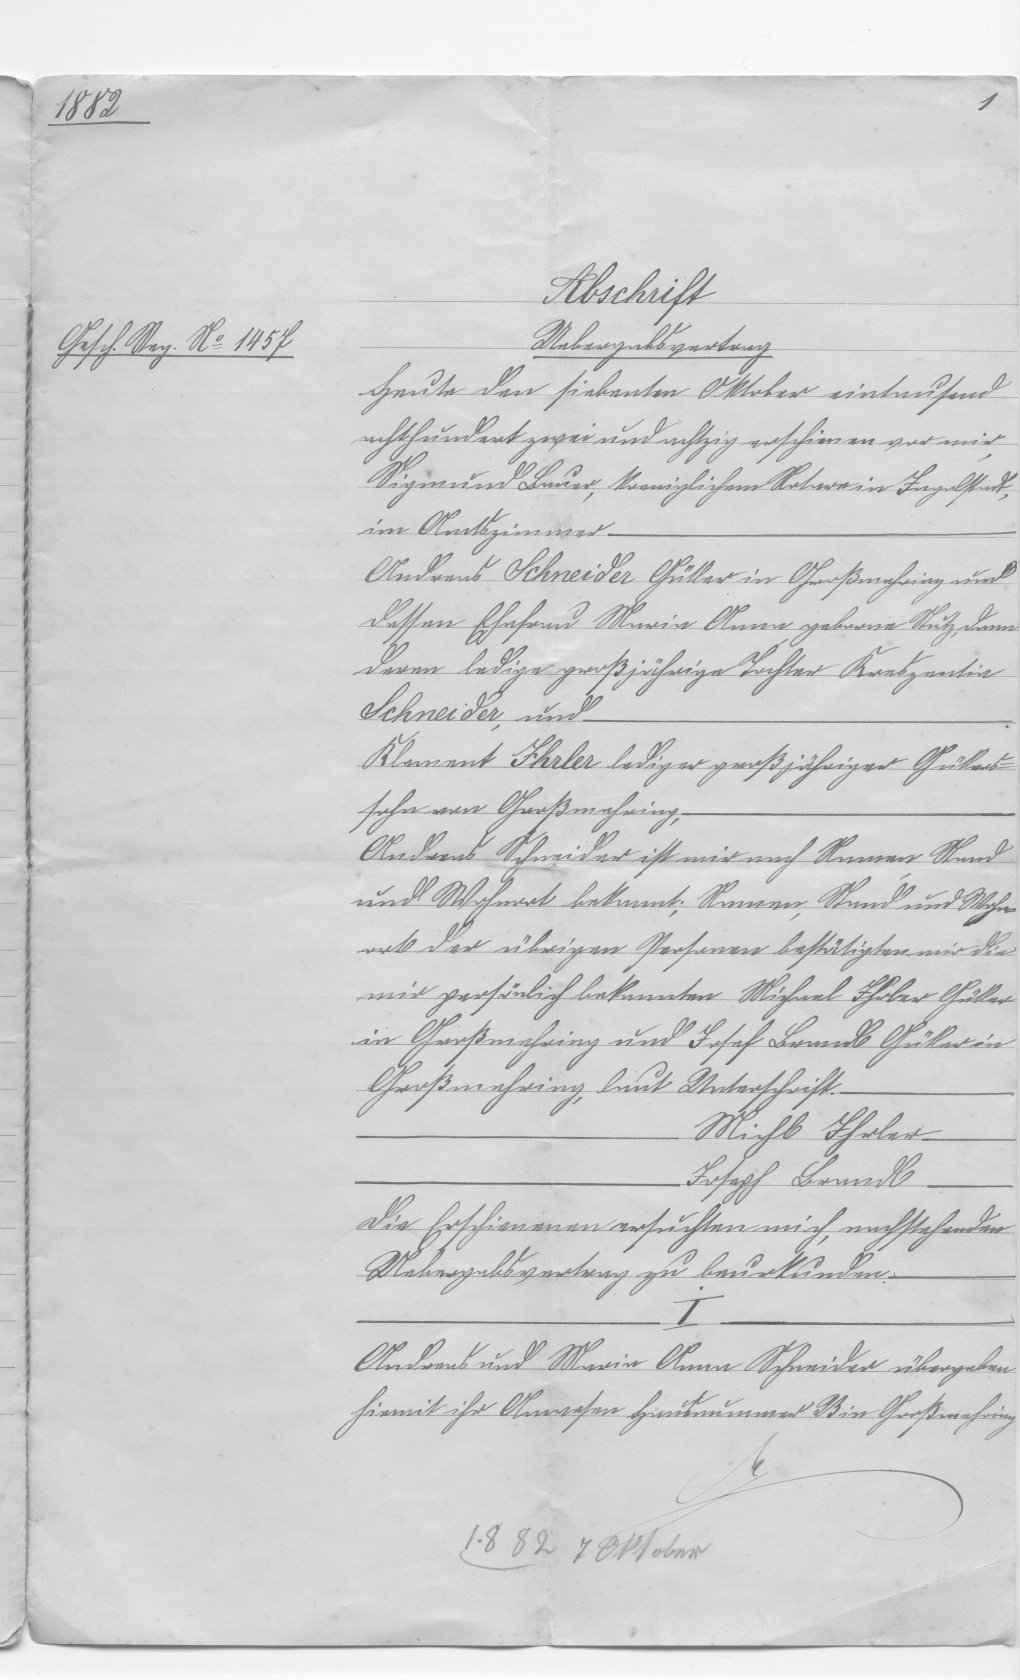 1882
1
Abschrift
Gesch. Reg. No 1457
Uebergabsvertrag
Heute den siebenten Oktober eintausend
achthundert zwei und achtzig erschienen vor mir,
Sigmund Bauer, koeniglichem Notare in Ingolstadt,
im Amtszimmer
Andreas Schneider Gütler in Großmehring und
dessen Ehefrau Maria Anna geborne Nutz, dann
deren ledige großjährige Tochter Kreszentia
Schneider, und
Klement Ihrler lediger großjähriger Gütlers=
sohn von Großmehring,
Andreas Schneider ist mir nach Namen, Stand
und Wohnort bekannt; Namen, Stand und Wohn
ort der übrigen Personen bestätigten mir die
mir persönlich bekannten Michael Ihrler Gütler
in Großmehring und Josef Brandl Gütler in
Großmehring, laut Unterschrift.
Michl Ihrler
Joseph Brandl
Die Erschienenen ersuchten mich, nachstehenden
Uebergabsvertrag zu beurkunden.
I
Andreas und Maria Anna Schneider übergeben
hiemit ihr Anwesen Hausnummer in Großmehring
1882 7 Oktober